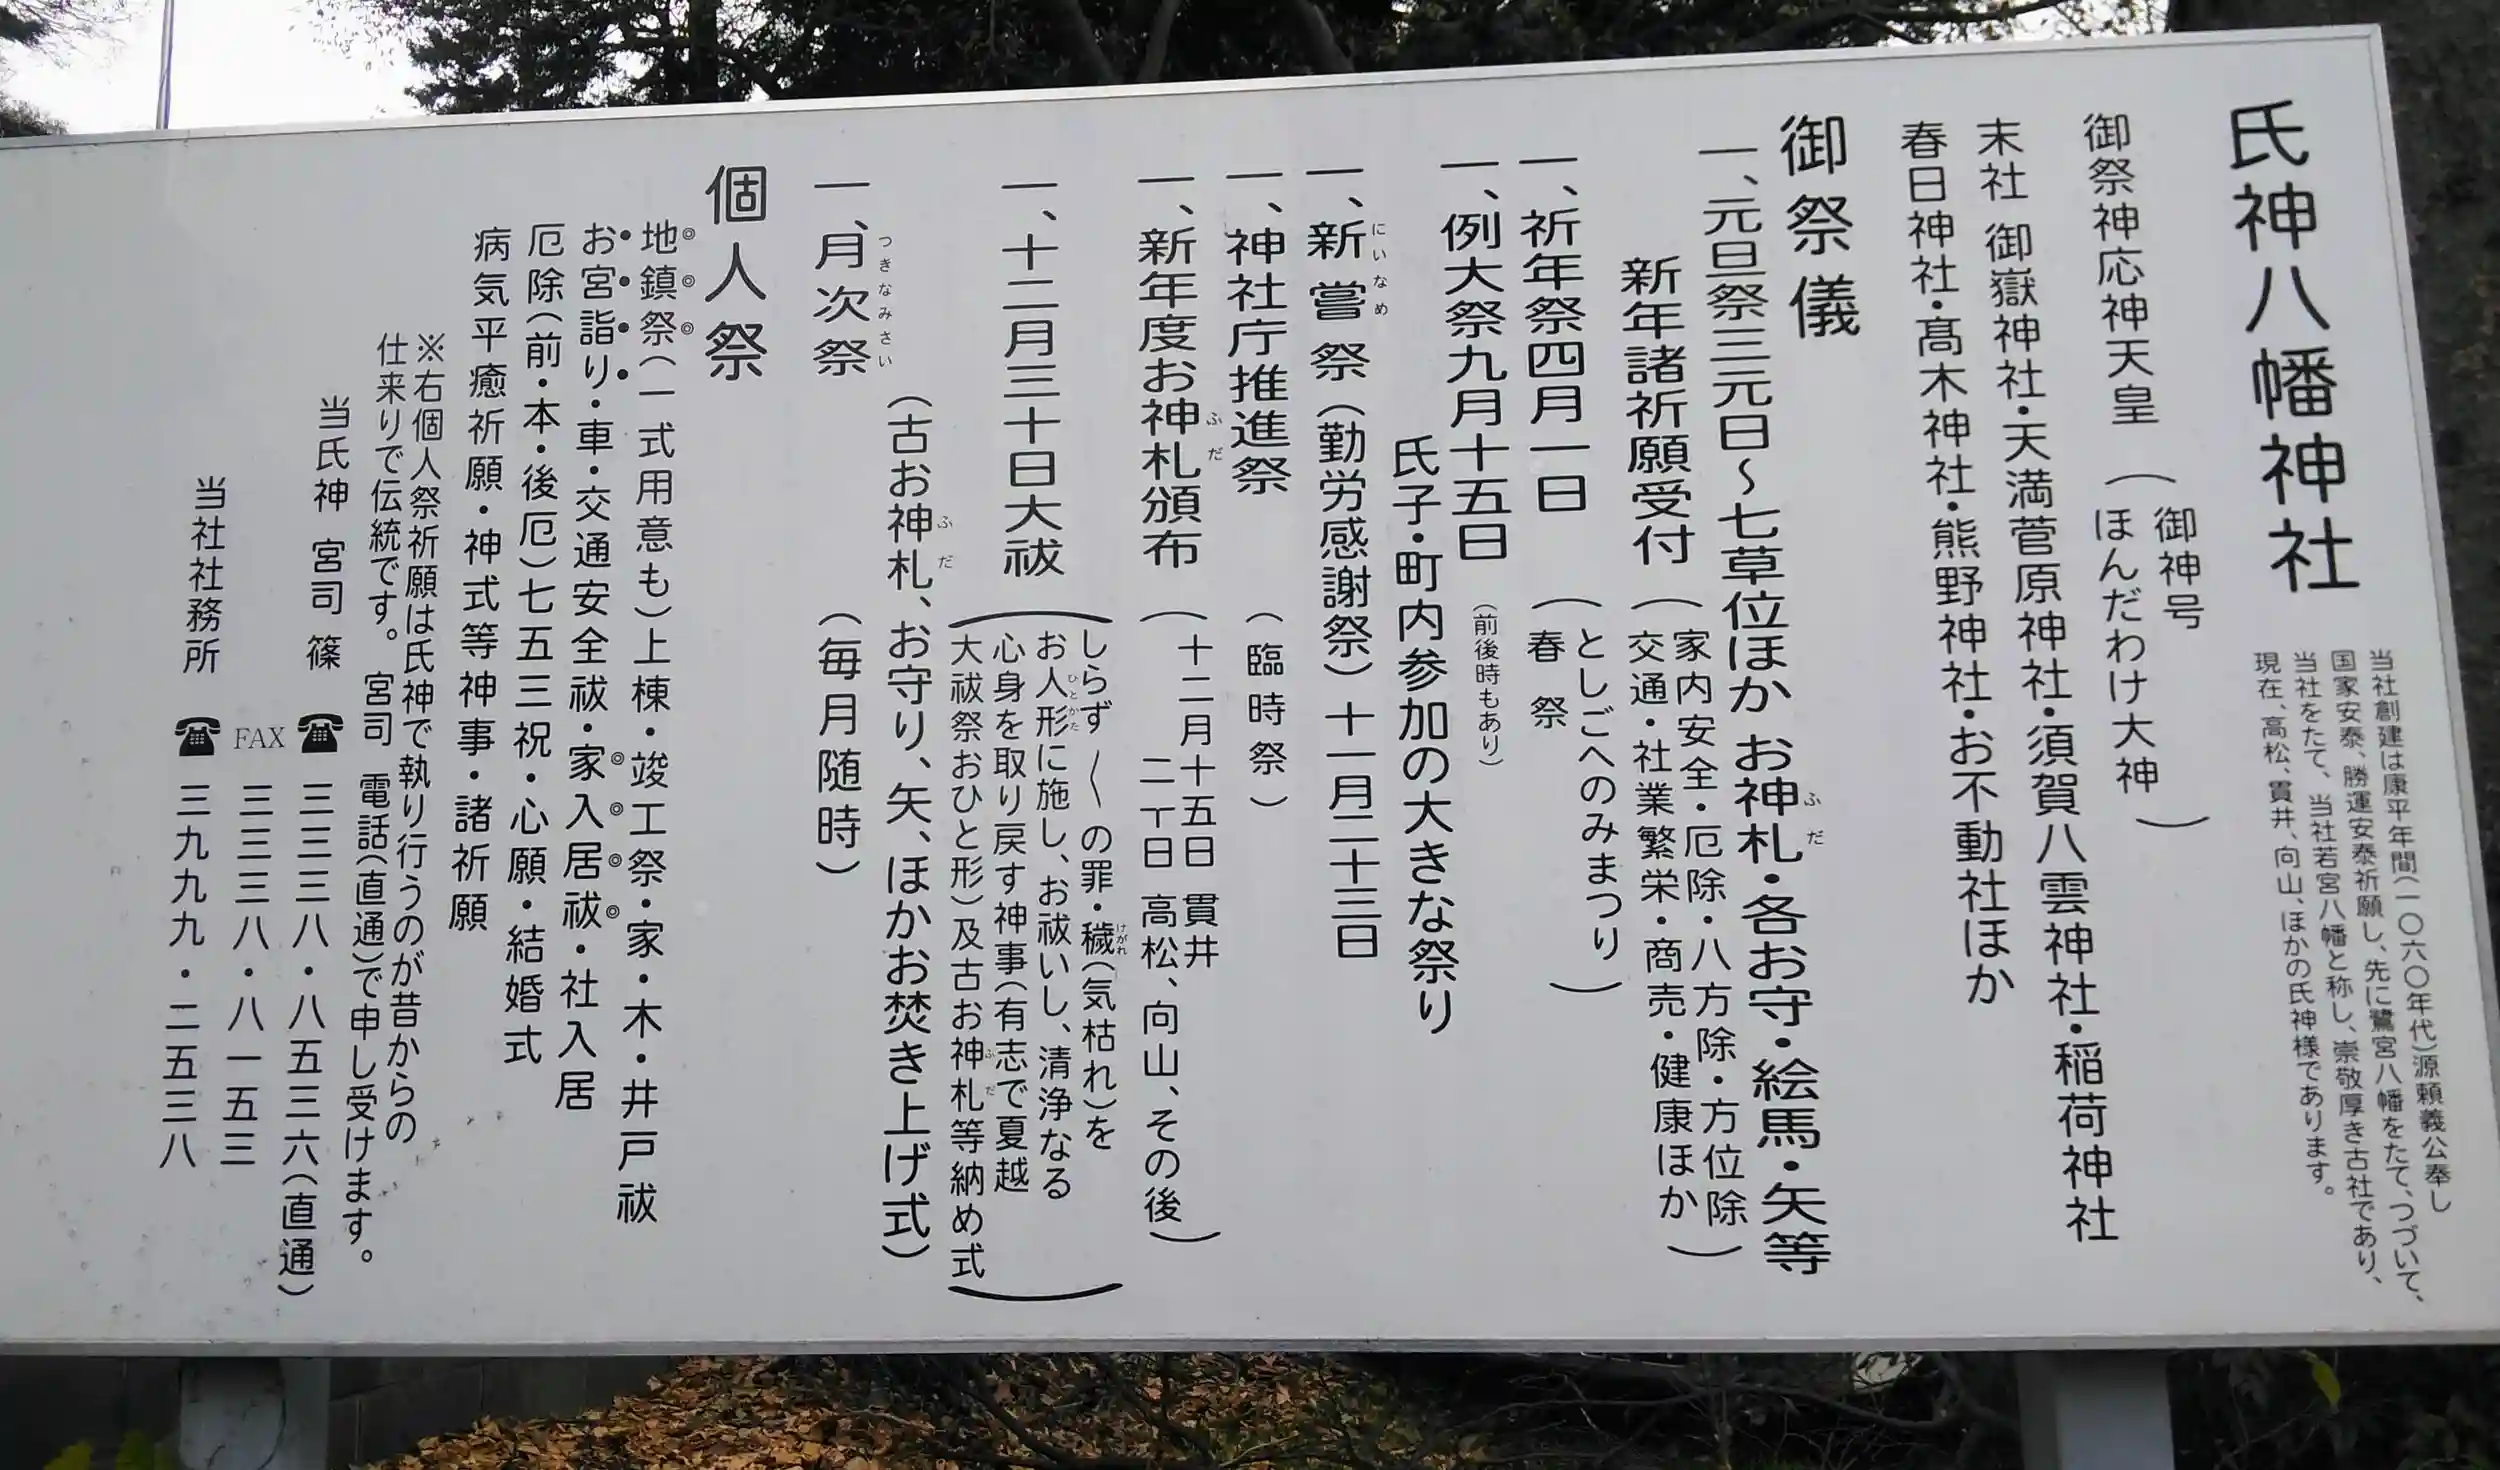 氏神八幡神社
当社創建は康平年間(一〇六〇年代)源頼義公奉し
国家安泰、勝運安泰祈願し、先に鷺宮八幡をたて、つづいて、
当社をたて、当社若宮八幡と称し、崇敬厚き古社であり、
現在、高松、貫井、向山、ほかの氏神様であります。
御祭神応神天皇(御神号 ほんだわけ大神)
末社 御嶽神社・天満菅原神社・須賀八雲神社・稲荷神社
春日神社・髙木神社・熊野神社・お不動社ほか
御祭儀
一、元旦祭三元日〜七草位ほか お神札・各お守・絵馬・矢等
ふだ
新年諸祈願受付(家内安全・厄除・八方除・方位除
交通・社業繁栄・商売・健康ほか)
一、祈年祭四月一日(としごへのみまつり)
春祭
一、例大祭九月十五日(前後時もあり)
氏子・町内参加の大きな祭り
一、新嘗祭(勤労感謝祭)十一月二十三日
にいなめ
一、神社庁推進祭(臨時祭)
一、新年度お神札頒布(十二月十五日 貫井
ふだ
二十日 高松、向山、その後)
一、十二月三十日大祓(しらず〱の罪・穢(気枯れ)を
けがれ
お人形に施し、お祓いし、清浄なる
ひとかた
心身を取り戻す神事(有志で夏越
大祓祭おひと形)及古お神札等納め式)
ふだ
(古お神札、お守り、矢、ほかお焚き上げ式)
ふだ
一、月次祭(毎月随時)
つきなみさい
個人祭
地鎮祭(一式用意も)上棟・竣工祭・家・木・井戸祓
お宮詣り・車・交通安全祓・家入居祓・社入居
厄除(前・本・後厄)七五三祝・心願・結婚式
病気平癒祈願・神式等神事・諸祈願
※右個人祭祈願は氏神で執り行うのが昔からの
仕来りで伝統です。宮司 電話(直通)で申し受けます。
当氏神 宮司 篠 ☎三三三八・八五三六(直通)
FAX 三三三八・八一五三
当社社務所 ☎三九九九・二五三八